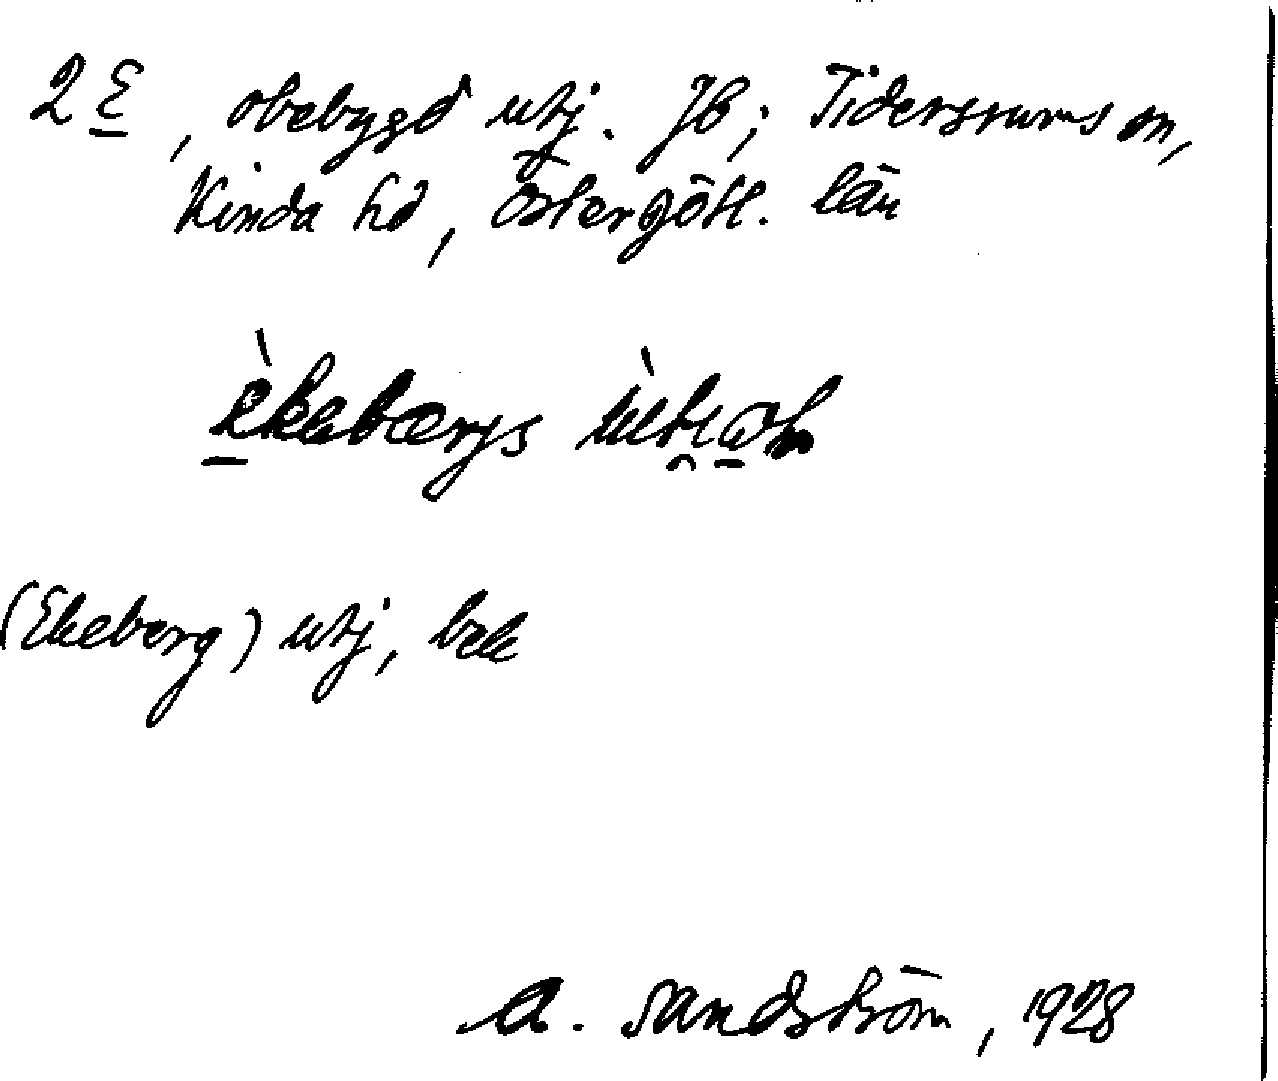 2 E, obebygd utj. Jb; Tidersrums sn,
Kinda hd, Östergötl. län
èkebærjs
(Ekeberg) utj, bek
A. Sandström, 1928